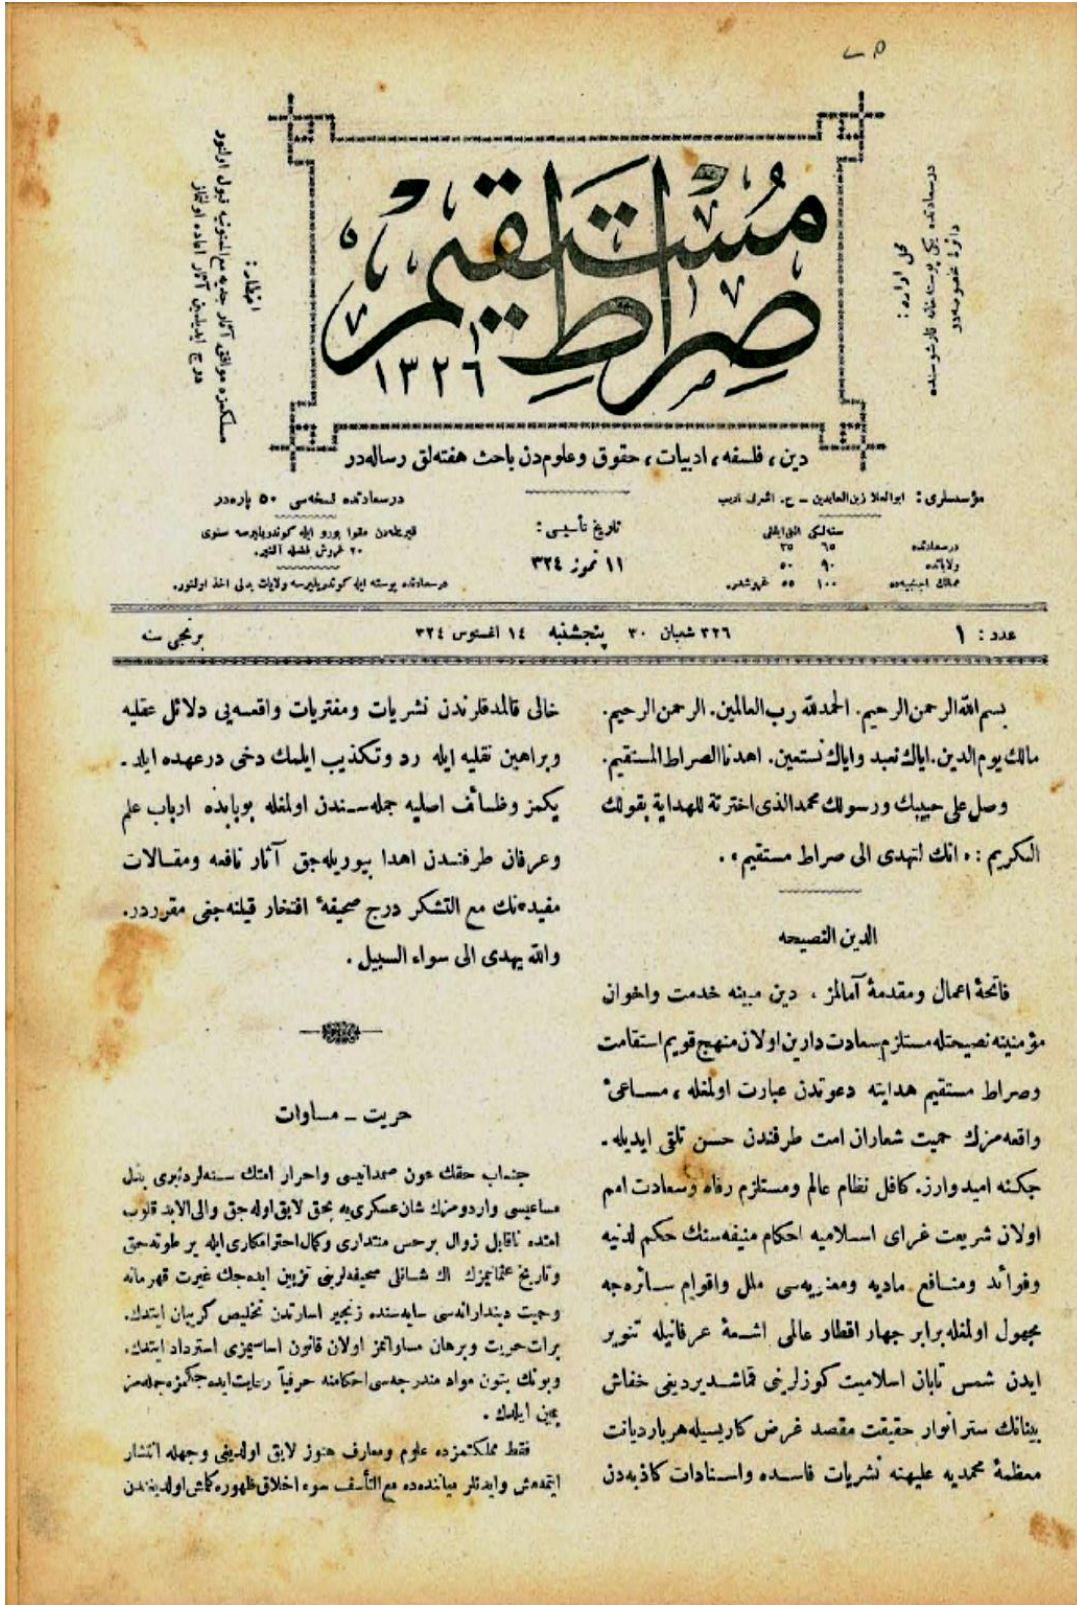 صراط مستقيم
١٣٢٦
محل اداره :
درسعادتده يكى پوسته‌خانه قارشوسنده
دائرهٔ مخصوصه‌در
اخطار :
مسلكمزه موافق آثار جديه مع‌الممنونيه قبول اولنور
درج ايديلمين آثار اعاده اولنماز
دين ، فلسفه ، ادبيات ، حقوق وعلوم‌دن باحث هفته‌لق رساله‌در
مؤسسلرى : ابوالعلا زين‌العابدين ـ ح. اشرف اديب
سنه‌لكى التى‌ايلغى
درسعادتده ٦٥ ٣٥
ولاياتده ٩٠ ٥٠
ممالك اجنبيه‌ده ١٠٠ ٥٥ غروشدر.
تاريخ تأسيسى :
١١ تموز ٣٢٤
درسعادتده نسخه‌سى ٥٠ پاره‌در
قيريلمه‌دن مقوا بورو ايله كوندريليرسه سنوى
٢٠ غروش فضله آلنير.
درسعادتده پوسته ايله كوندريليرسه ولايات بدلى اخذ اولنور.
عدد : ١
٣٢٦ شعبان ٣٠ پنجشنبه ١٤ اغستوس ٣٢٤
برنجى سنه
بسم‌الله الرحمن الرحيم. الحمدلله رب العالمين. الرحمن الرحيم.
مالك يوم الدين. اياك نعبد واياك نستعين. اهدنا الصراط المستقيم.
وصل على حبيبك ورسولك محمدالذى اخترته للهداية بقولك
الكريم : « انك لتهدى الى صراط مستقيم » .
الدين النصيحه
فاتحهٔ اعمال ومقدمهٔ آمالمز ، دين مبينه خدمت واخوان
مؤمنينه نصيحتله مستلزم سعادت دارين اولان منهج قويم استقامت
وصراط مستقيم هدايته دعوتدن عبارت اولمغله ، مساعئ
واقعه‌مزك حميت شعاران امت طرفندن حسن تلقى ايديله ـ
جكنه اميدوارز. كافل نظام عالم ومستلزم رفاه وسعادت امم
اولان شريعت غراى اسلاميه احكام منيفه‌سنك حكم لدنيه
وفوائد ومنافع ماديه ومعنويه‌سى ملل واقوام سائره‌جه
مجهول اولمغله برابر چهار اقطار عالمى اشعهٔ عرفانيله تنوير
ايدن شمس تابان اسلاميت كوزلرينى قماشديرديغى خفاش
بينانك ستر انوار حقيقت مقصد غرض كاريسيله هر بار ديانت
معظمهٔ محمديه عليهنه نشريات فاسده واسنادات كاذبه‌دن
خالى قالمدقلرندن نشريات ومفتريات واقعه‌يى دلائل عقليه
وبراهين نقليه ايله رد وتكذيب ايلمك دخى درعهده ايلد ـ
يكمز وظائف اصليه جمله‌سندن اولمغله بوبابده ارباب علم
وعرفان طرفندن اهدا بيوريله‌جق آثار نافعه ومقالات
مفيده‌نك مع التشكر درج صحيفهٔ افتخار قيلنه‌جغى مقرردر.
والله يهدى الى سواء السبيل .
حريت ـ مساوات
جناب حقك عون صمدانيسى واحرار امتك سنه‌لردنبرى بذل
مساعيسى واردومزك شان عسكرى‌يه بحق لايق اوله‌جق والى‌الابد قلوب
امتده ناقابل زوال برحس منتدارى وكمال احترامكارى ايله ير طوته‌جق
وتاريخ عثمانيمزك اك شانلى صحيفه‌لرينى تزيين ايده‌جك غيرت قهرمانه
وحميت ديندارانه‌سى سايه‌سنده زنجير اسارتدن تخليص كريبان ايتدك.
برات حريت وبرهان مساواتمز اولان قانون اساسيمزى استرداد ايتدك.
وبونك بتون مواد مندرجه‌سى احكامنه حرفياً رعايت ايده‌جكمزه جمله‌مز
يمين ايلدك .
فقط مملكتمزده علوم ومعارف هنوز لايق اولديغى وجهله انتشار
ايتمه‌مش وايدنلر ميانده‌ده مع‌التأسف سوء اخلاق ظهوره كلمش اولديغندن